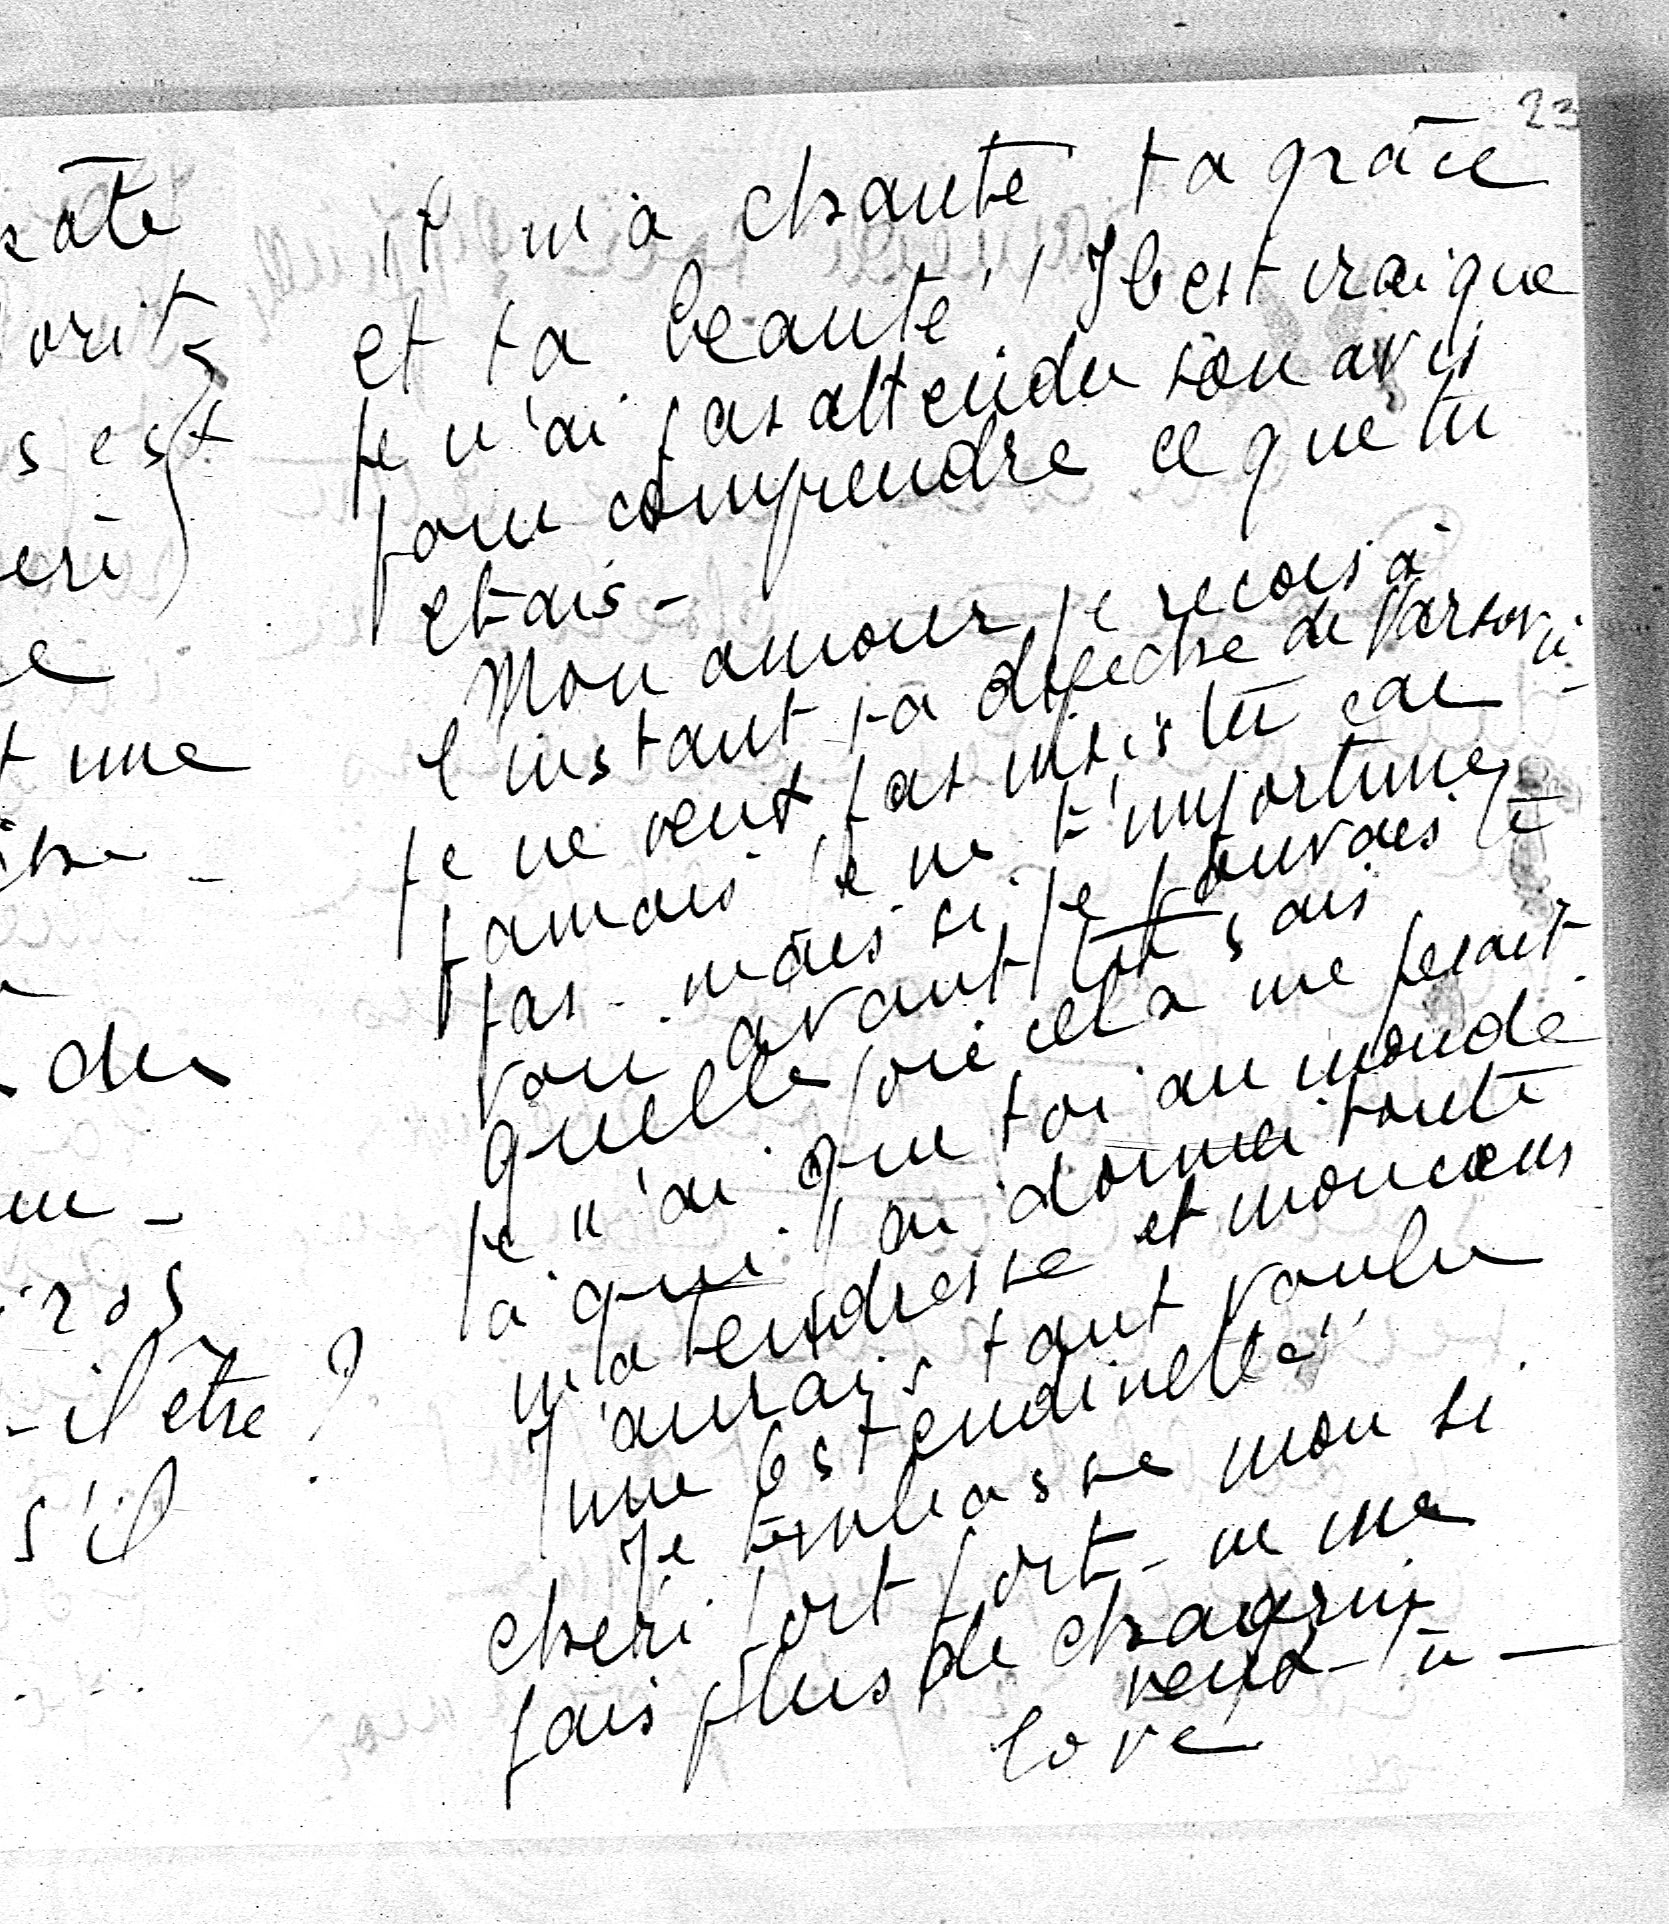 23
il m'a chanté ta grâce
et ta beauté! Il est vrai que
je n'ai pas attendu son avis
pour comprendre ce que tu
etais -
Mon amour je recois à
l'instant ta dépêche de Varsovie
je ne veux pas insister car
jamais je ne t'importunerai
pas - mais si je pouvais te
voir avant tu sais
quelle joie cela me ferait
je n'ai que toi au monde
à qui j'ai donné toute
ma tendresse et mon cœur
J'aurais tant voulu
une
Je t'embrasse mon si
cheri fort fort - ne me
fais plus de chagrin
veux-tu -
love
orit
s est
eri
t une
du
- il être ?
s'il